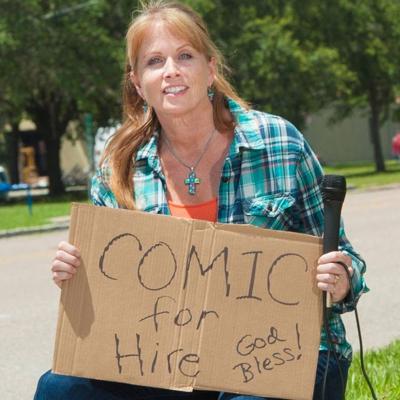 COMIC
for
Hire
God
Bless!